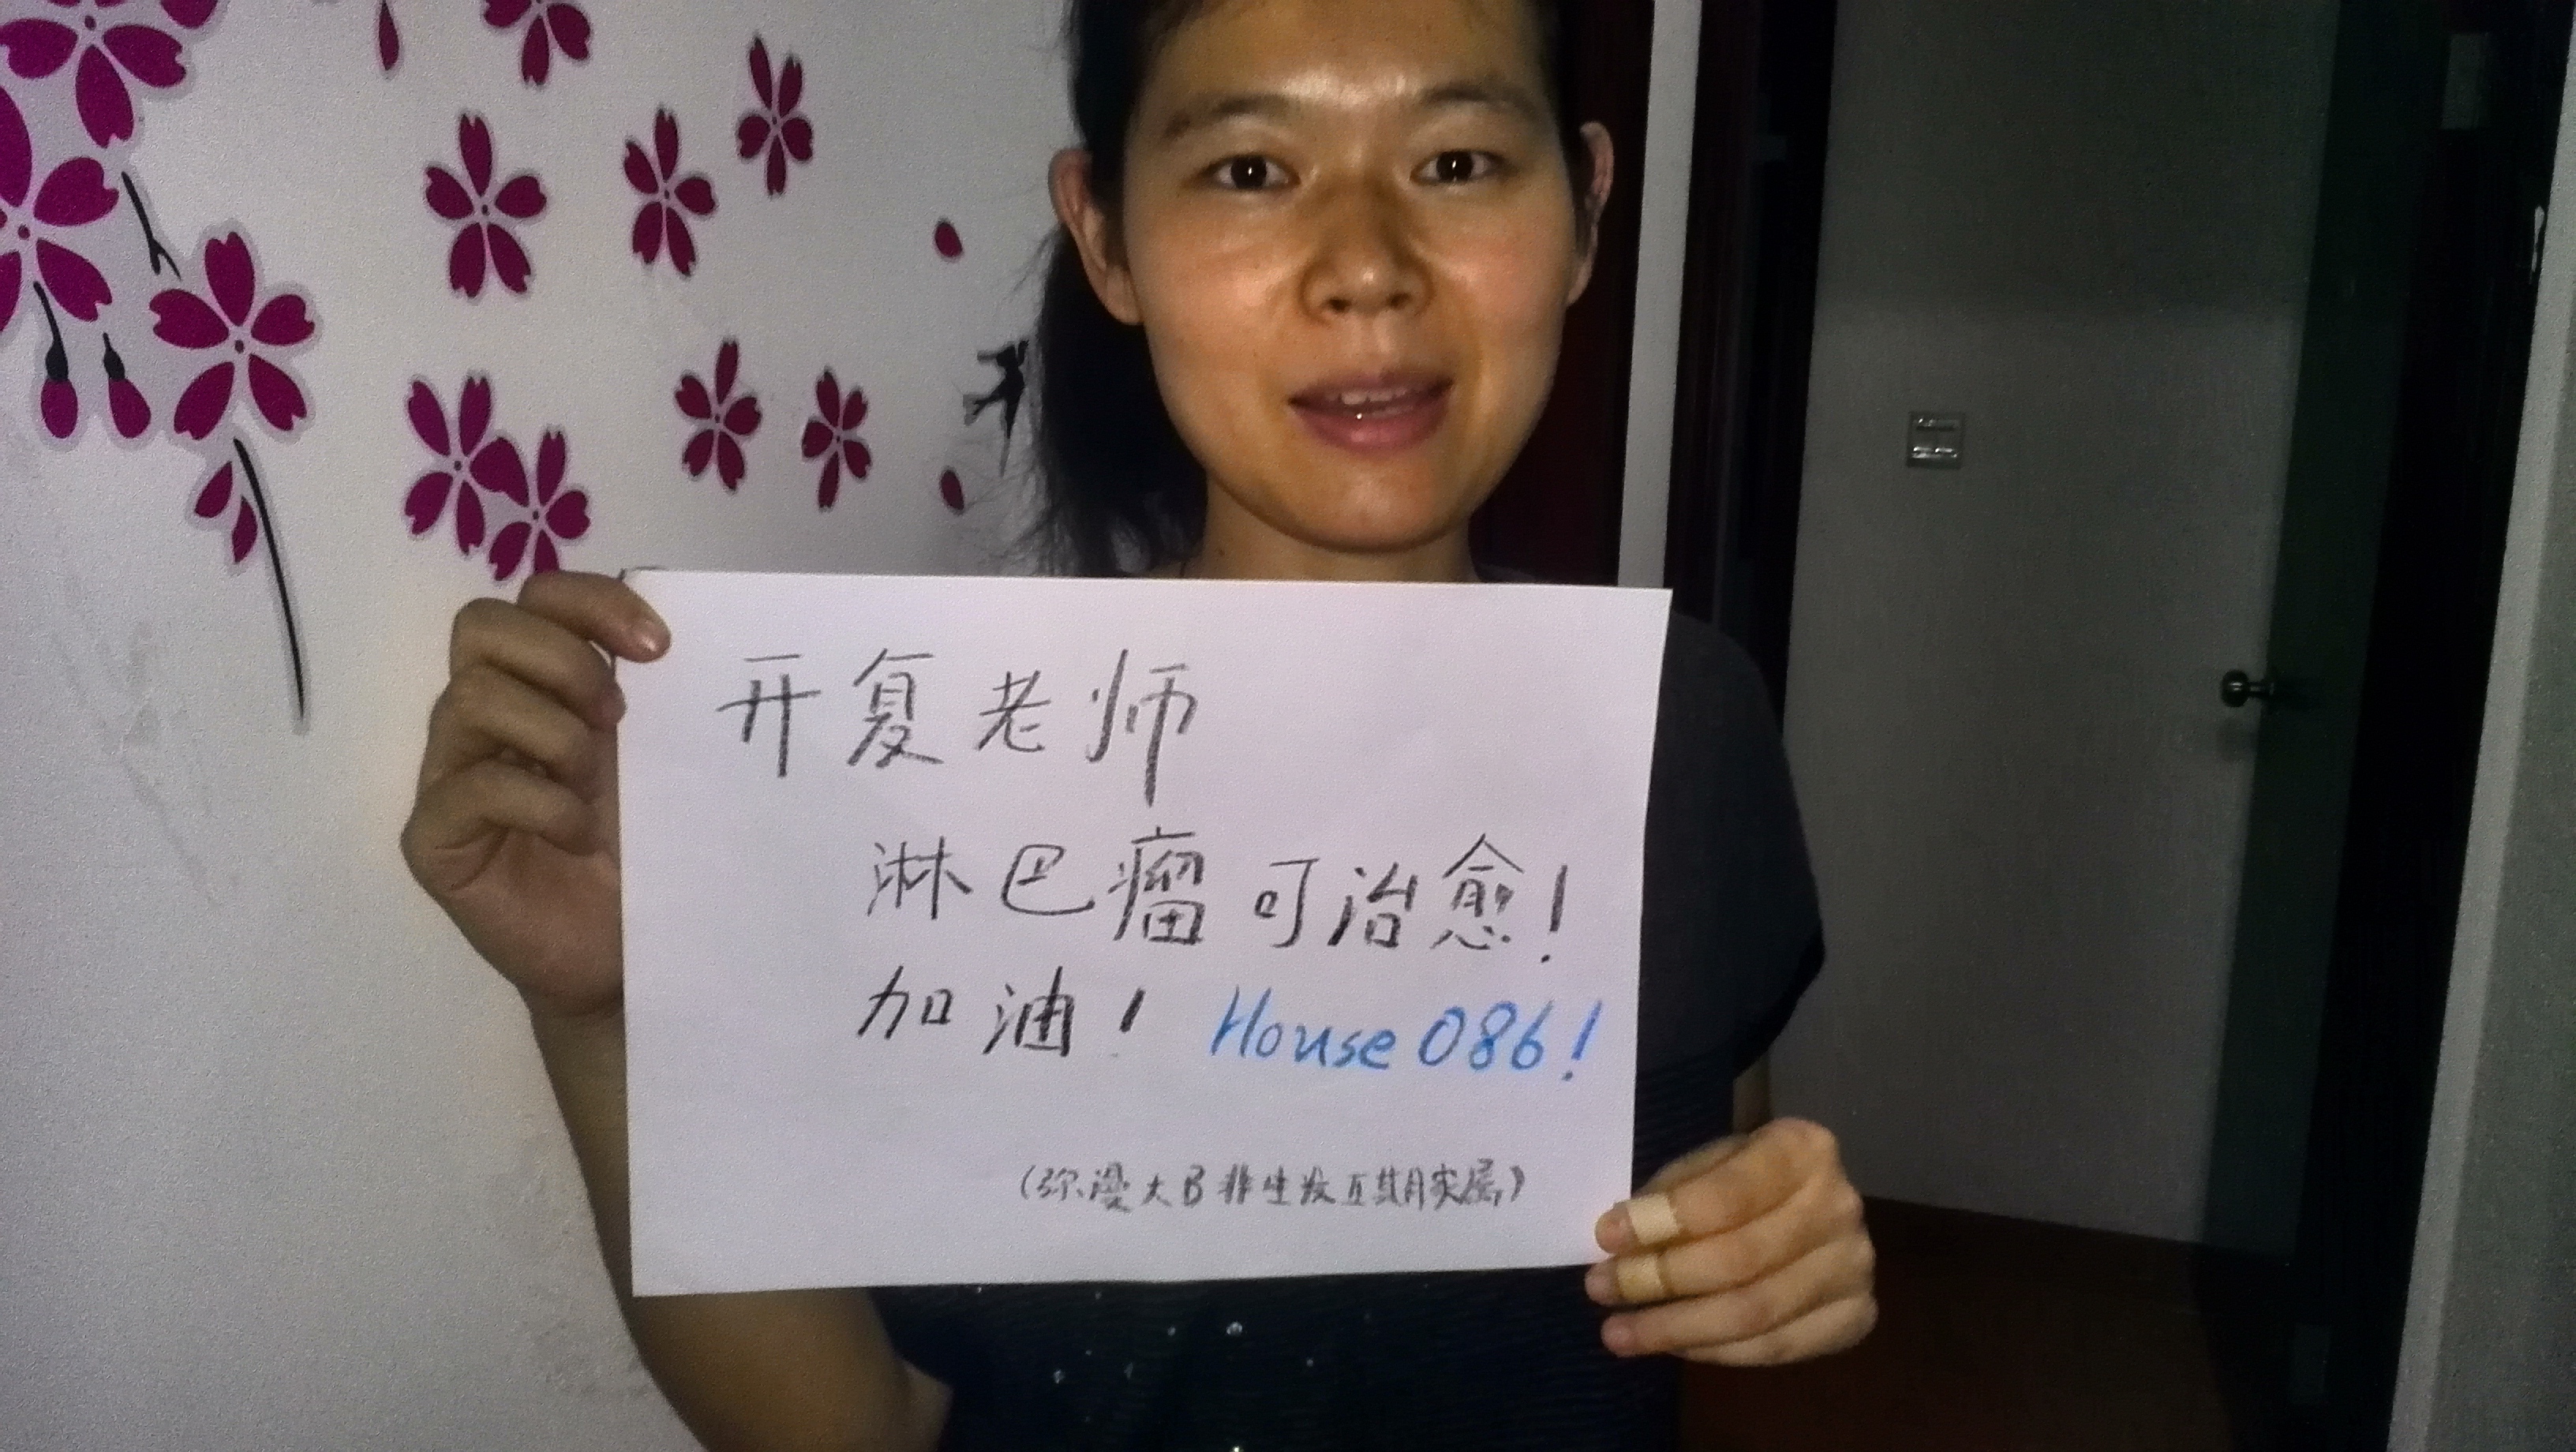 开复老师
淋巴瘤可治愈!
加油! House086!
(弥漫大B非生发 期家属)